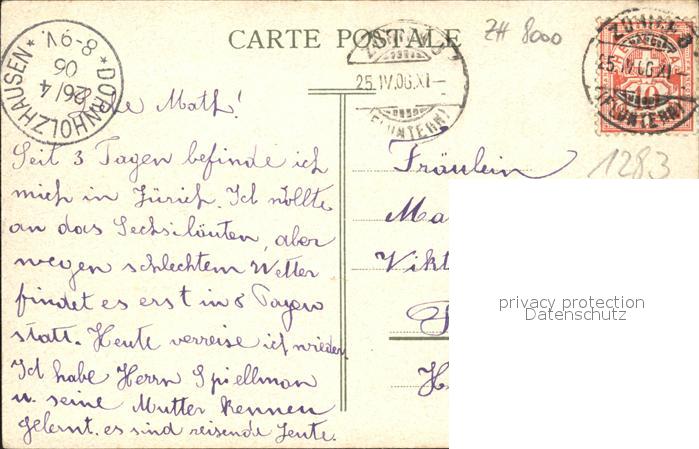 CARTE POSTALE
ZH 8000
DORNHOLZHAUSEN
26/4
06
8-9V.
25.IV.06.XI-
(FLUNTERN)
25.IV.06.XI-
(FLUNTERN)
10
1283
Liebe Math!
Seit 3 Tagen befinde ich
mich in Zürich. Ich wollte
an das Sechsiläuten, aber
wegen schlechtem Wetter
findet es erst in 8 Tagen
statt. Heute verreise ich wieder.
Ich habe Herrn Spiellman
u. seine Mutter kennen
gelernt. es sind reisende Leute.
Fräulein
Ma
Vikt
H
privacy protection
Datenschutz